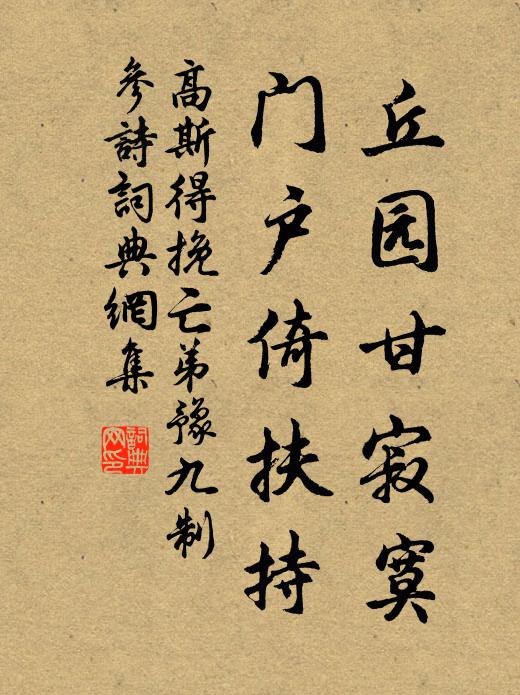 丘园甘寂寞
门户倚扶持
高斯得挽亡弟豫九制
参詩詞典網集
詞典
网印